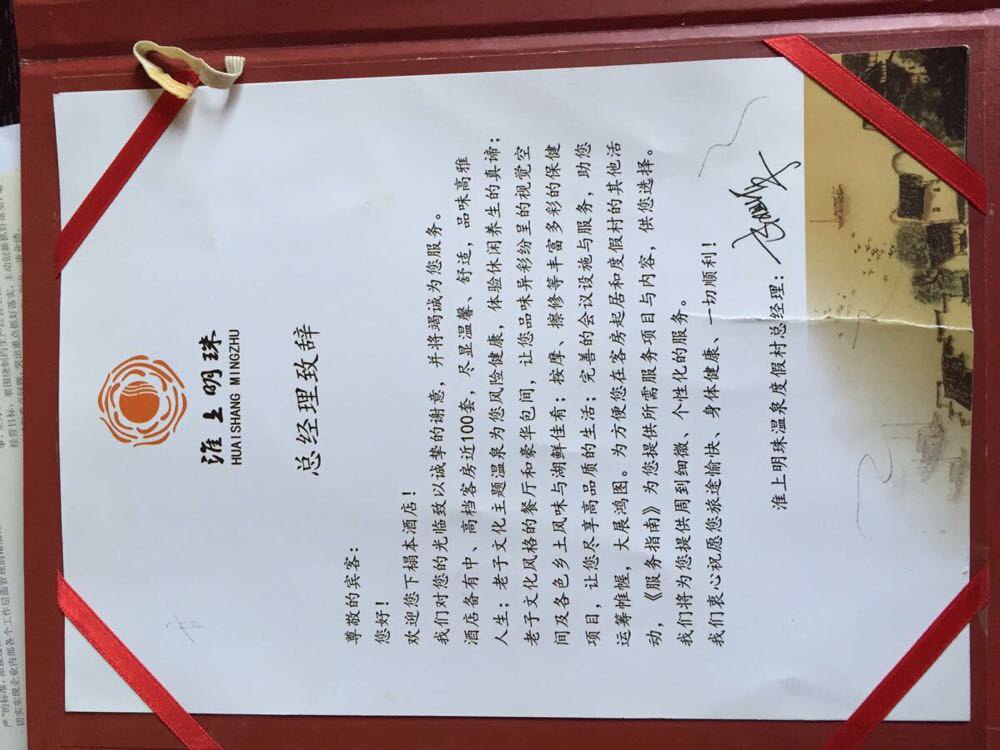 淮上明珠
HUAISHANG MINGZHU
总经理致辞
尊敬的宾客：
您好！
欢迎您下榻本酒店！
我们对您的光临致以诚挚的谢意，并将竭诚为您服务。
酒店备有中、高档客房近100套，尽显温馨、舒适，品味高雅
人生；老子文化主题温泉为您风险健康，体验休闲养生的真谛；
老子文化风格的餐厅和豪华包间，让您品味异彩纷呈的视觉空
间及各色乡土风味与湖鲜佳肴；按摩、擦修等丰富多彩的保健
项目，让您尽享高品质的生活；完善的会议设施与服务，助您
运筹帷幄，大展鸿图。为方便您在客房起居和度假村的其他活
动，《服务指南》为您提供所需服务项目与内容，供您选择。
我们将为您提供周到细微、个性化的服务。
我们衷心祝愿您旅途愉快、身体健康、一切顺利！
淮上明珠温泉度假村总经理：